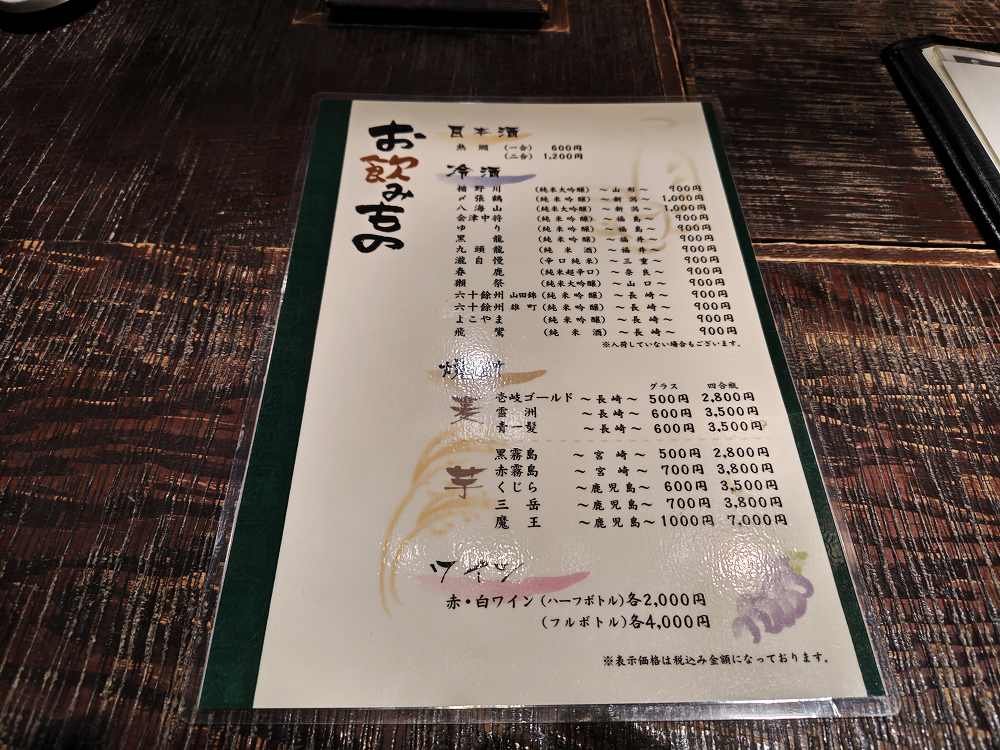 お飲みもの
日本酒
熱燗 (一合) 600円
(二合) 1,200円
冷酒
楯野川 (純米大吟醸) ～山形～ 900円
〆張鶴 (純米吟醸) ～新潟～ 1,000円
八海山 (純米大吟醸) ～新潟～ 1,000円
会津中将 (純米吟醸) ～福島～ 900円
ゆり (純米吟醸) ～福島～ 900円
黒龍 (純米吟醸) ～福井～ 900円
九頭龍 (純米酒) ～福井～ 900円
瀧自慢 (辛口純米) ～三重～ 900円
春鹿 (純米超辛口) ～奈良～ 900円
獺祭 (純米大吟醸) ～山口～ 900円
六十餘州 山田錦 (純米吟醸) ～長崎～ 900円
六十餘州 雄町 (純米吟醸) ～長崎～ 900円
よこやま (純米吟醸) ～長崎～ 900円
飛鸞 (純米酒) ～長崎～ 900円
※入荷していない場合もございます。
焼酎
グラス 四合瓶
麦
壱岐ゴールド ～長崎～ 500円 2,800円
雲洲 ～長崎～ 600円 3,500円
青一髪 ～長崎～ 600円 3,500円
芋
黒霧島 ～宮崎～ 500円 2,800円
赤霧島 ～宮崎～ 700円 3,800円
くじら ～鹿児島～ 600円 3,500円
三岳 ～鹿児島～ 700円 3,800円
魔王 ～鹿児島～ 1000円 7,000円
ワイン
赤・白ワイン (ハーフボトル) 各2,000円
(フルボトル) 各4,000円
※表示価格は税込み金額になっております。